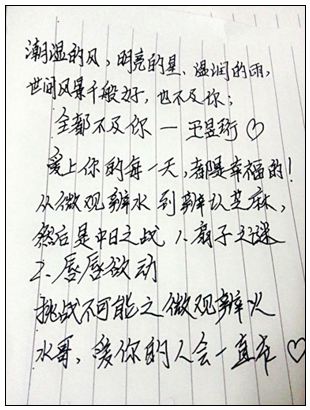 潮湿的风、明亮的星、温润的雨,
世间风景千般好,也不及你;
全都不及你 — 王昱珩♡
爱上你的每一天,都是幸福的!
从微观辨水到辨认芝麻,
然后是中日之战 1.扇子之谜
2.唇唇欲动
挑战不可能之微观辨火
水哥,爱你的人会一直在♡